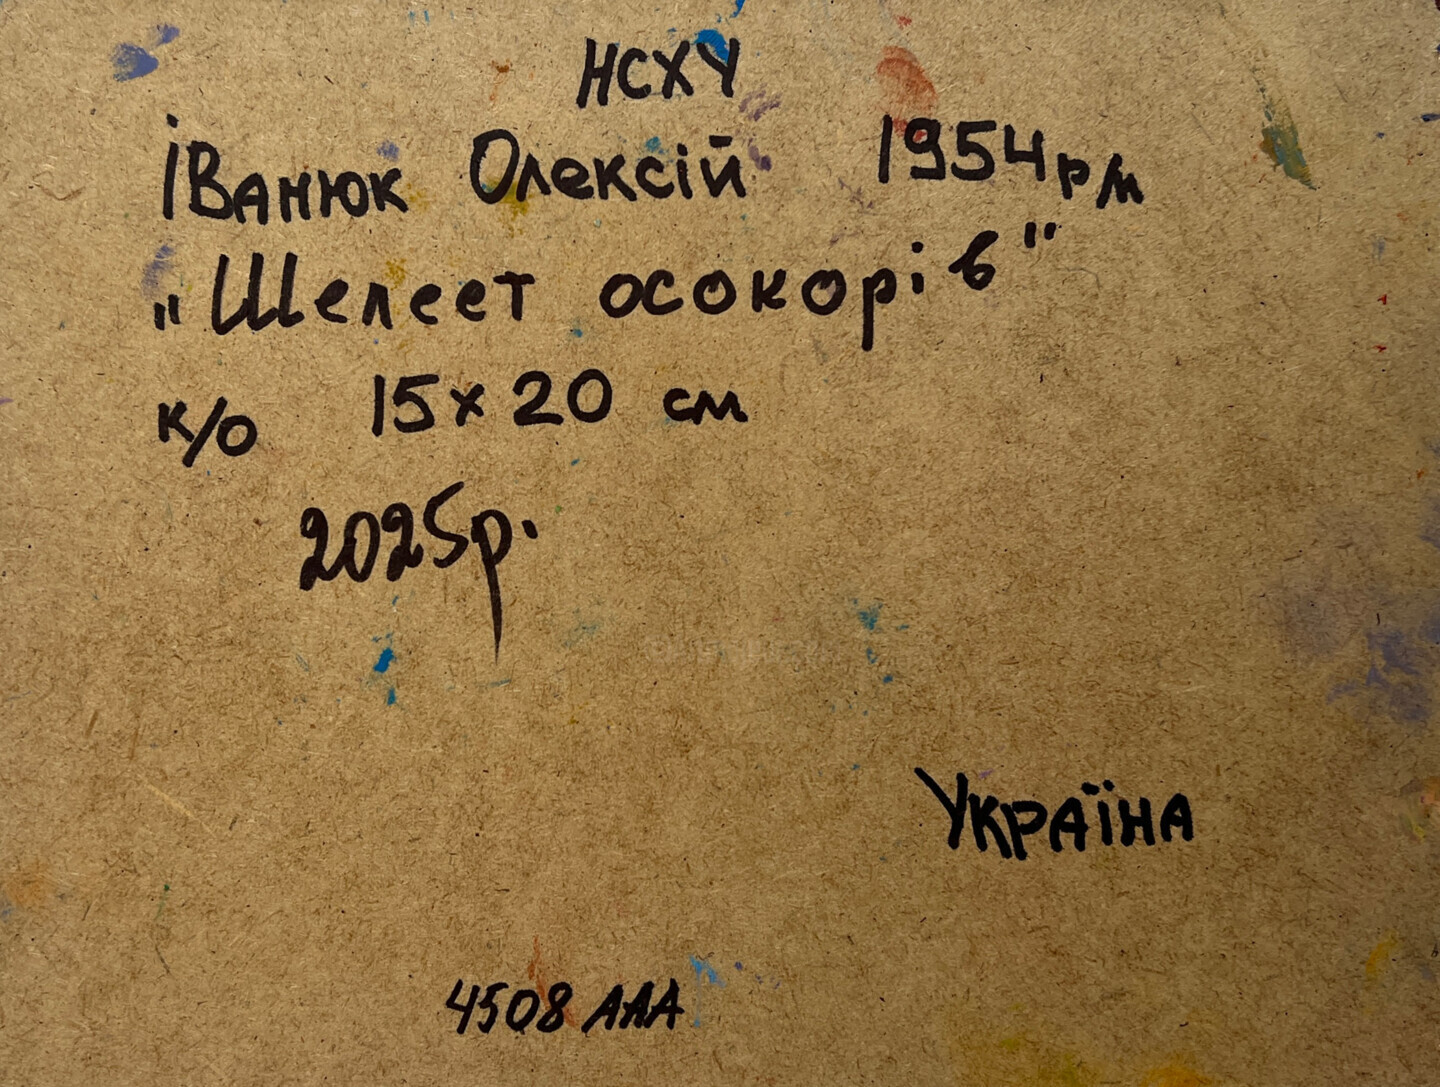 НСХУ
Іванюк Олексій 1954 р/н
„Шелест осокорів"
к/о 15х20 см
2025р.
Україна
4508 ААА